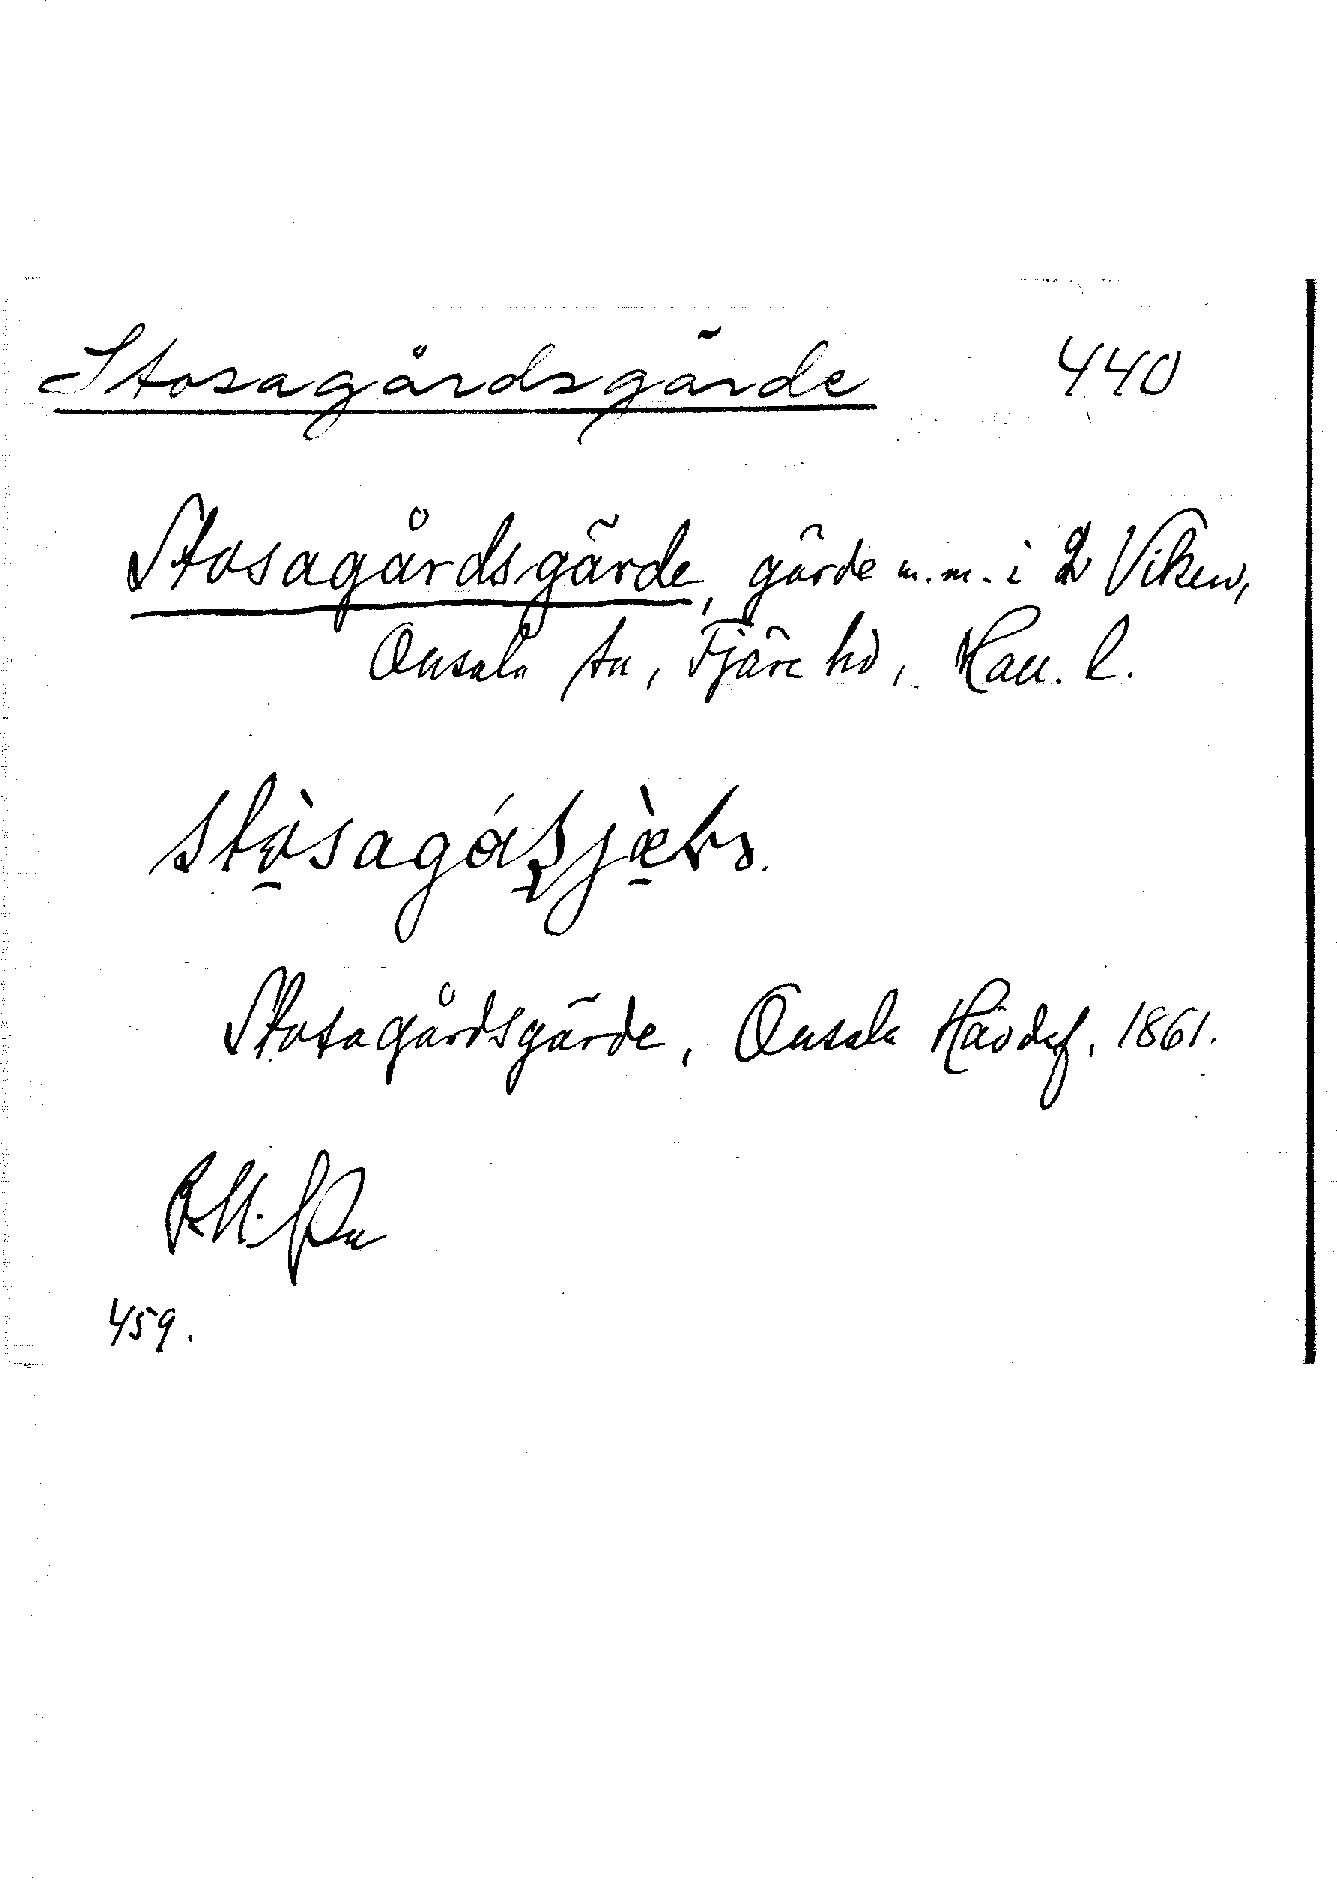 Stosagårdsgärde 440
Stosagårdsgärde, gärde m.m. i 2 Viken,
Onsala sn, Fjäre hd, Hall. l.
Stosagårdsgärde, Onsala Hävdef. 1861.
459.